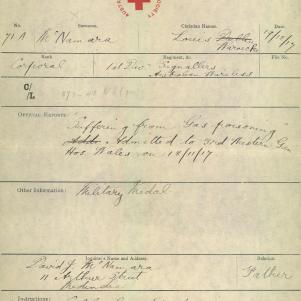 AUST SOCIETY
No. Surname. Christian Names. Date.
71A McNamara Louis Pablo 17/12/17
Warwick
Rank Regiment, &c. File No.
Corporal 1st Div Signallers
Australian Wireless
C/
L
OFFICIAL REPORTS:
Suffering from "Gas poisoning"
Admitted to 3rd Western Gen
Hos. Wales on 18/11/17
Other Information: Military Medal
Inquirer's Name and Address. Relation.
David J. McNamara Father
11 Arthur Street
Medindie
Instructions: